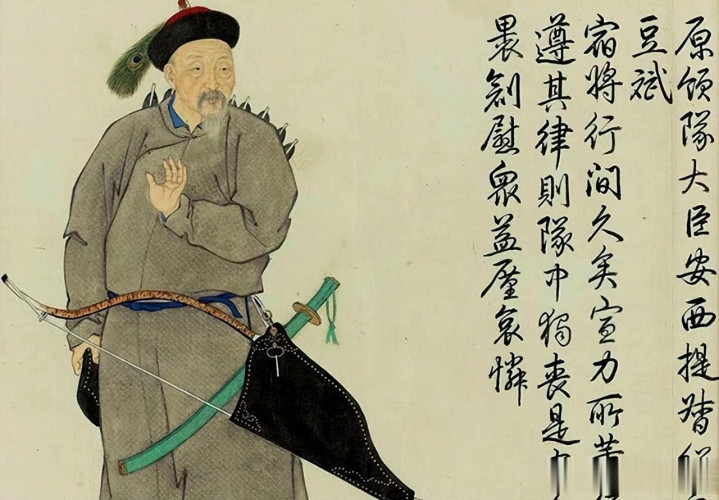 原領隊大臣安西提督
豆斌
宿將行間久矣宣力所
遵其律則隊中獨喪是
裹創慰衆益廑哀憐